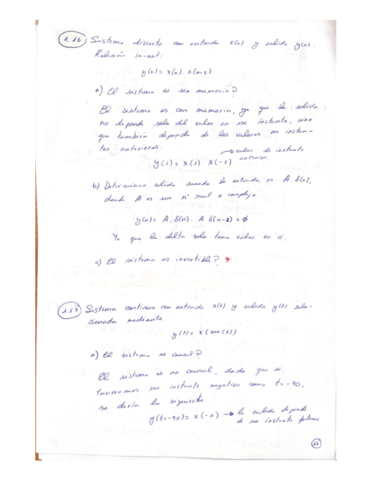 1.16 Sistema discreto con entrada x(n) y salida y(n).
Relación in-out:
y(n) = x(n) · x(n-2)
a) El sistema es sin memoria?
El sistema es con memoria, ya que la salida
no depende solo del valor en ese instante, sino
que también depende de los valores en instan-
tes anteriores.
y(1) = x(1) · x(-1) → valor de instante
anterior
b) Determinar salida cuando la entrada es A·δ(n),
donde A es un nº real o complejo
y(n) = A·δ(n) · A·δ(n-2) = ø
Ya que la delta solo toma valor en 0.
c) El sistema es invertible?
1.17 Sistema continuo con entrada x(t) y salida y(t) rela-
cionada mediante
y(t) = x(sen(t))
a) El sistema es causal?
El sistema es no causal, dado que si
tuvieramos un instante negativo como t=-90,
se daría lo siguiente
y(t=-90) = x(-1) → la salida depende
de un instante futuro.